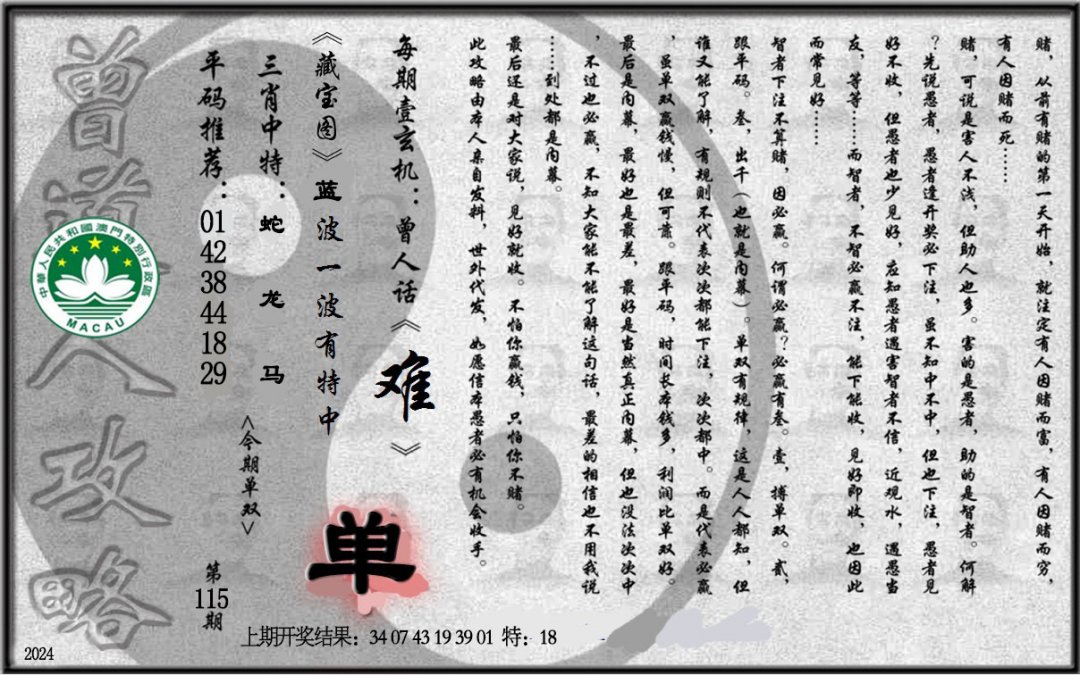 赌，从前有赌的第一天开始，就注定有人因赌而富，有人因赌而穷，
有人因赌而死……
赌，可说是害人不浅，但助人也多。害的是愚者，助的是智者。何解
？先说愚者，愚者逢开奖必下注，虽不知中不中，但也下注，愚者见
好不收，但愚者也少见好，应知愚者遇害智者不信，近观水，遇愚当
友，等等……而智者，不智必赢不注，能下能收，见好即收，也因此
而常见好……
智者下注不算赌，因必赢。何谓必赢？必赢有叁。壹，搏单双。贰，
跟平码。叁，出千（也就是内幕）。单双有规律，这是人人都知，但
谁又能了解，有规则不代表次次都能下注，次次都中。而是代表必赢
，虽单双赢钱慢，但可靠。跟平码，时间长本钱多，利润比单双好。
最后是内幕，最好也是最差，最好是当然真正内幕，但也没法次次中
，不过也必赢，不知大家能不能了解这句话，最差的相信也不用我说
……到处都是内幕。
最后还是对大家说，见好就收。不怕你赢钱，只怕你不赌。
此攻略由本人亲自发料，世外代发，如愿信本愚者必有机会收手。
每期壹玄机：曾人话《难》
《藏宝图》蓝波一波有特中
单
三肖中特：蛇 龙 马
<今期单双>
平码推荐：01 42 38 44 18 29
第115期
曾道人攻略
中華人民共和國澳門特別行政區
MACAU
上期开奖结果：34 07 43 19 39 01 特：18
2024